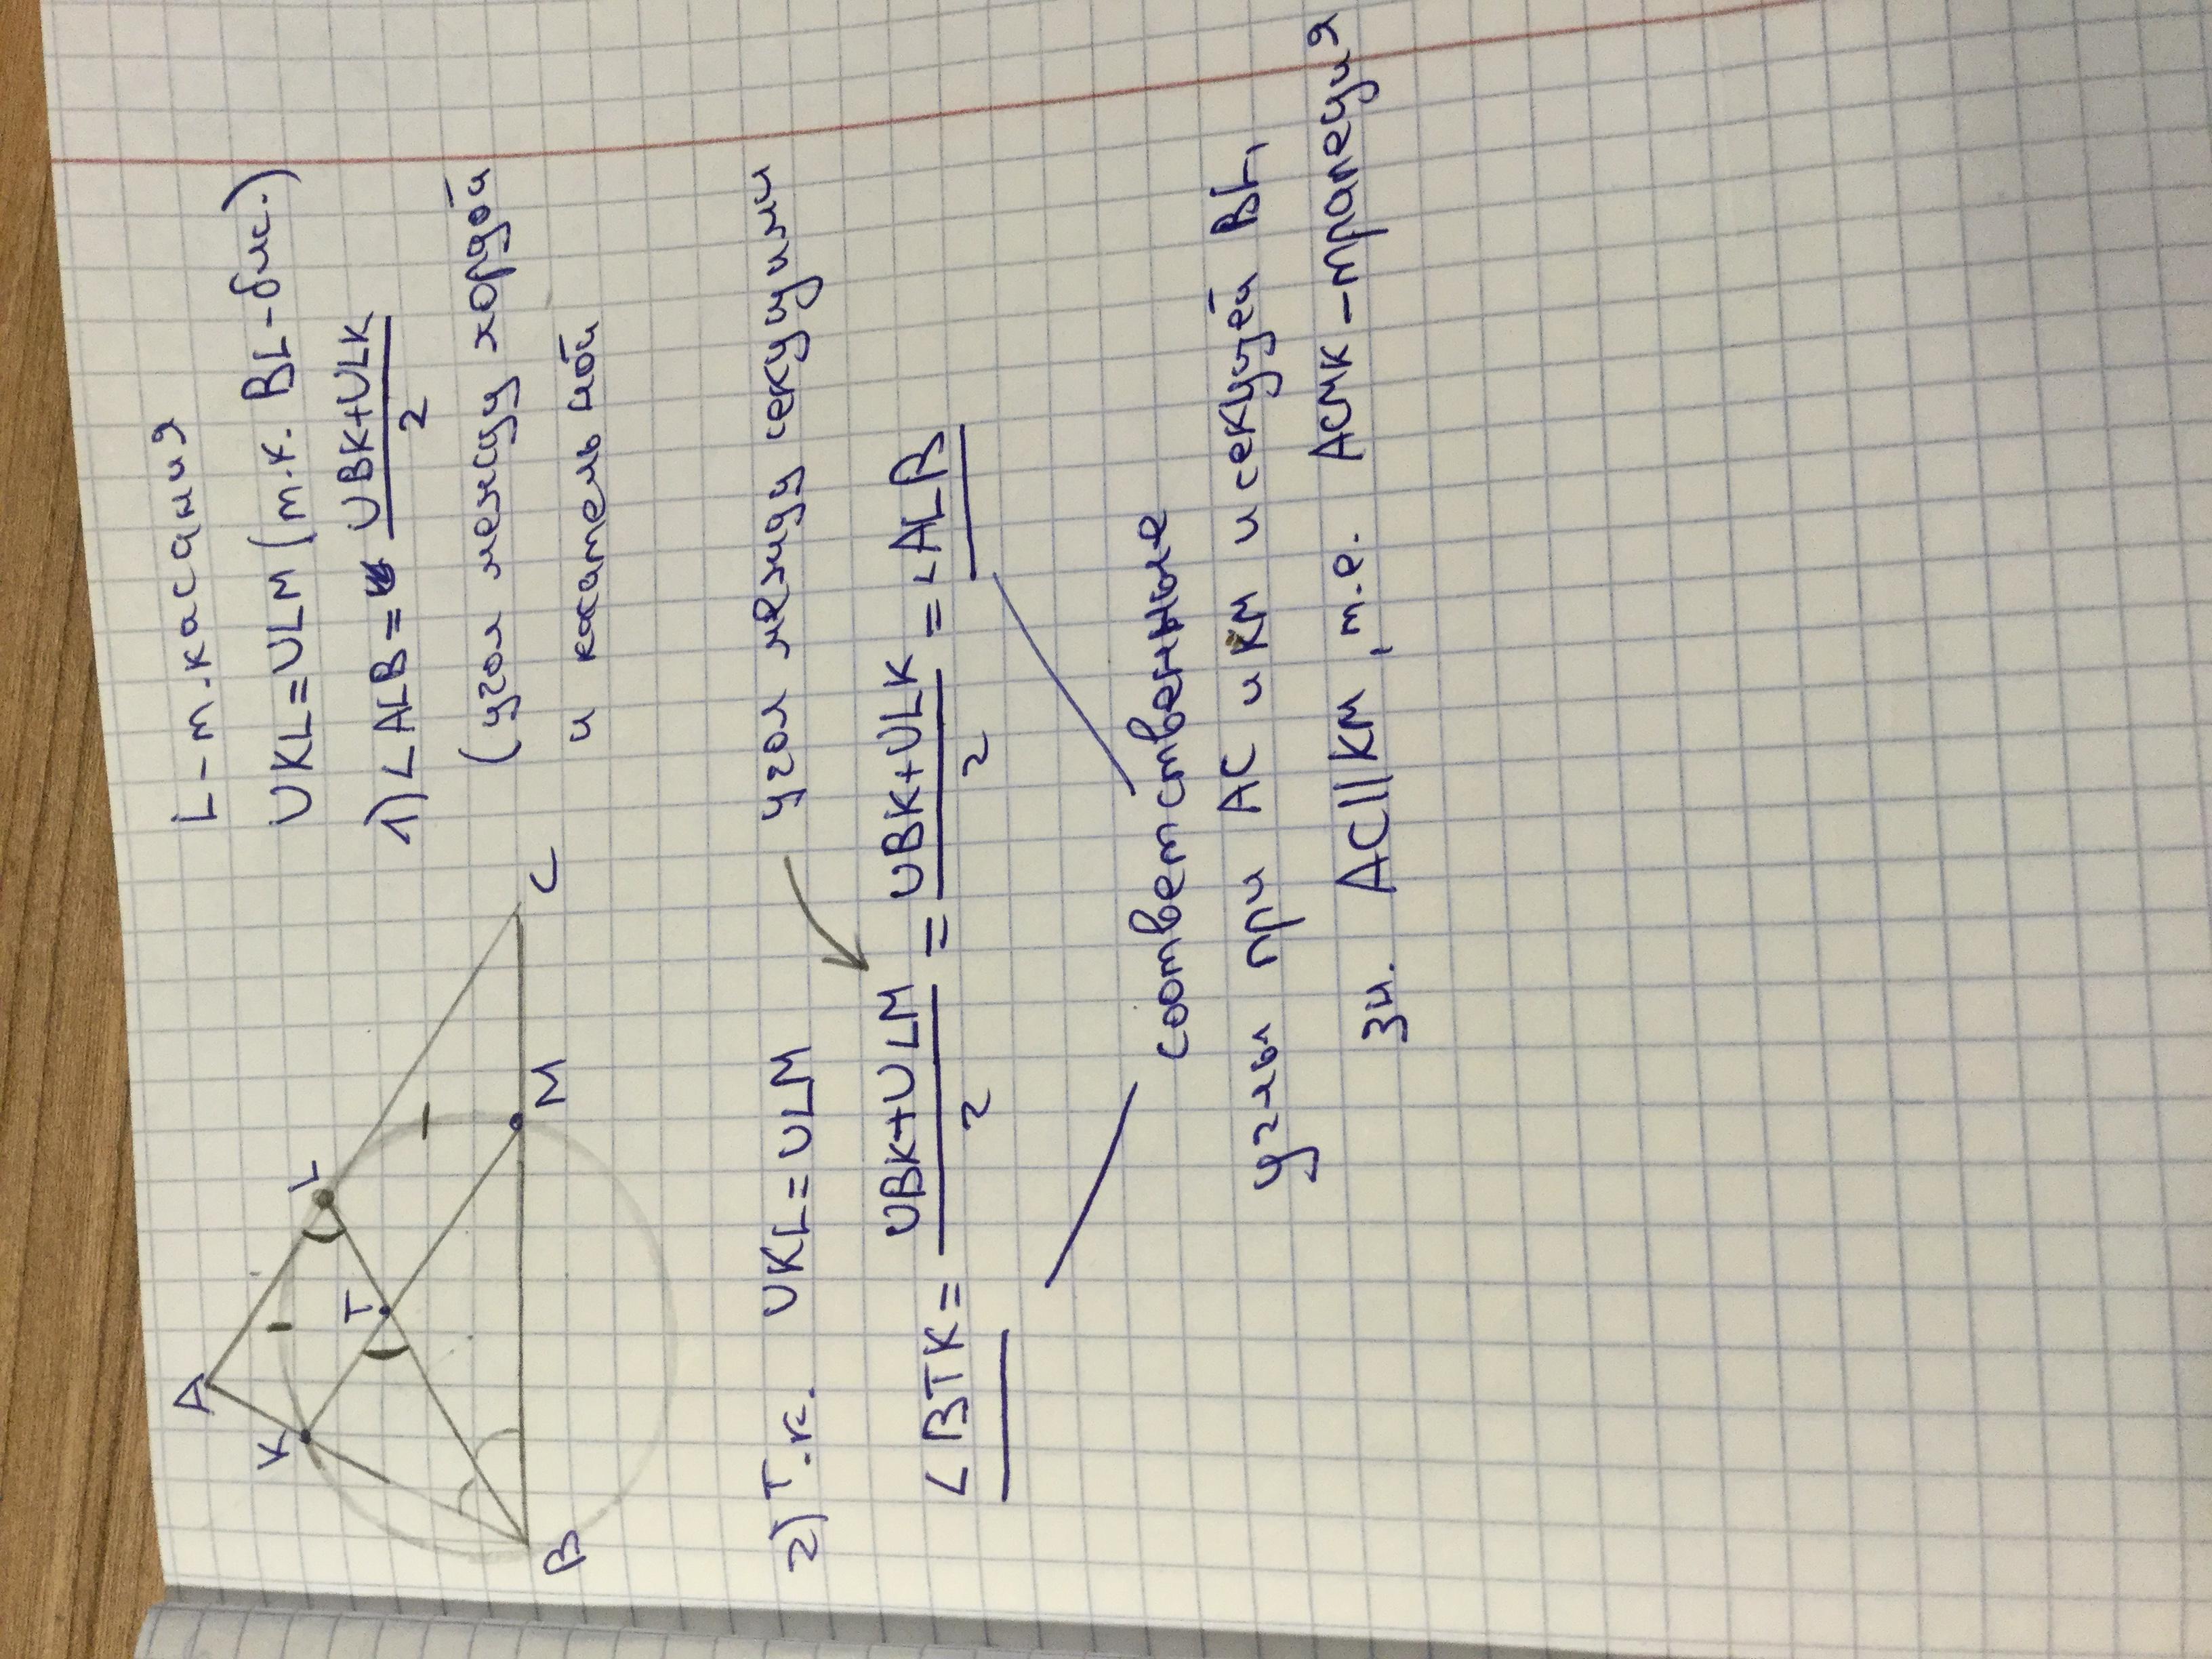 A
K
L
T
M
B
C
L - т. касания
∪KL = ∪LM (т.к. BL - бис.)
1) ∠ALB = ∪BK+∪LK / 2
(угол между хордой
и касательной
2) Т.к. ∪KL = ∪LM
угол между секущими
∠BTK = ∪BK+∪LM / 2 = ∪BK+∪LK / 2 = ∠ALB
соответственные
углы при AC и KM и секущей BL,
зн. AC||KM, т.е. ACMK - трапеция